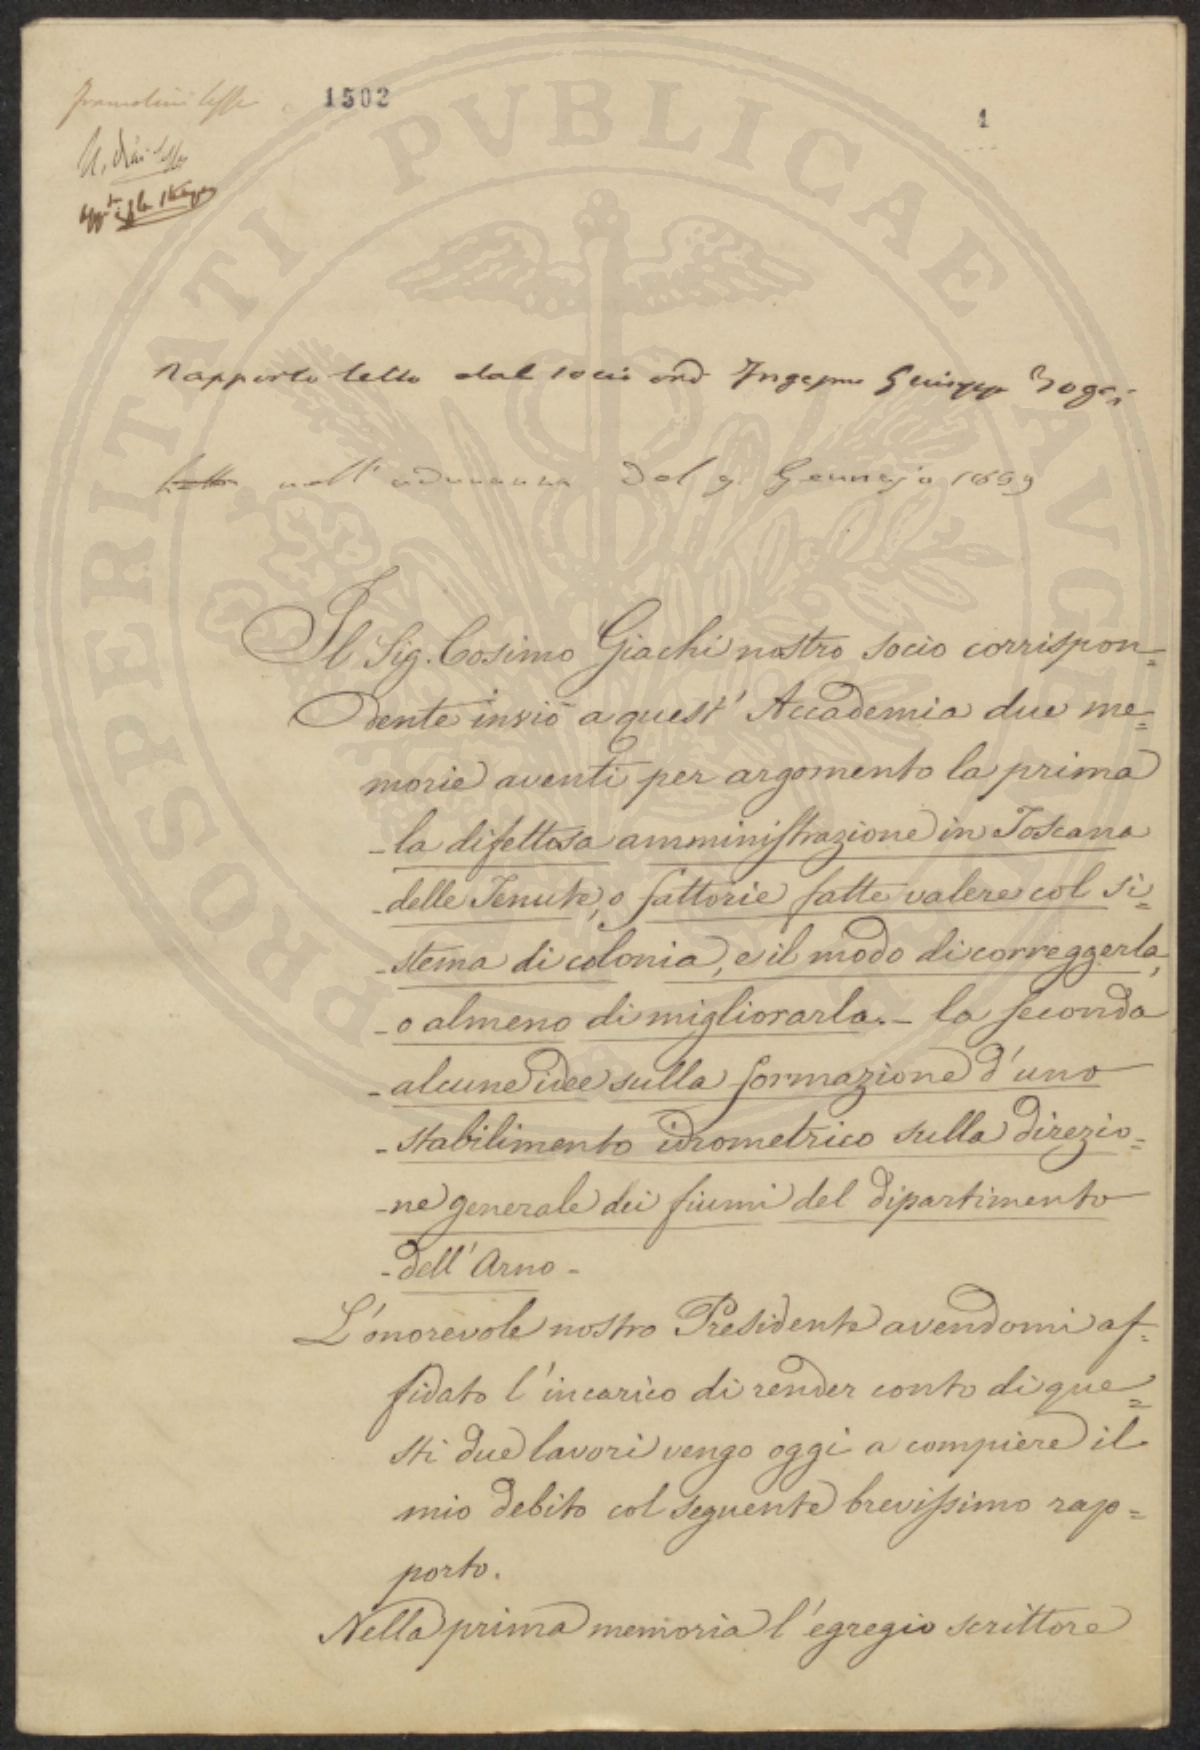 1502
1
Rapporto letto dal socio ord Ingegnere Giuseppe
Letto nell'adunanza del 9 Gennajo 1859
Il Sig. Cosimo Giachi nostro socio corrispon=
dente inviò a quest' Accademia due me=
morie aventi per argomento la prima
- la difettosa amministrazione in Toscana
- delle Tenute, o fattorie fatte valere col si=
- stema di colonia, e il modo di correggerla,
- o almeno di migliorarla. - la seconda
- alcune idee sulla formazione d'uno
- stabilimento idrometrico sulla direzio=
- ne generale dei fiumi del dipartimento
- dell'Arno -
L'onorevole nostro Presidente avendomi af=
fidato l'incarico di render conto di que=
sti due lavori vengo oggi a compiere il
mio debito col seguente brevissimo rap=
porto.
Nella prima memoria l'egregio scrittore
PROSPERITATI PVBLICAE AVGE